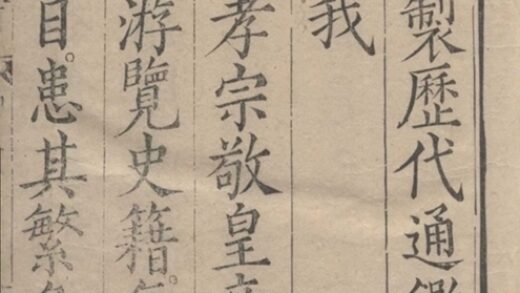 製歷代通鑑
我
孝宗敬皇
游覽史籍
目患其繁